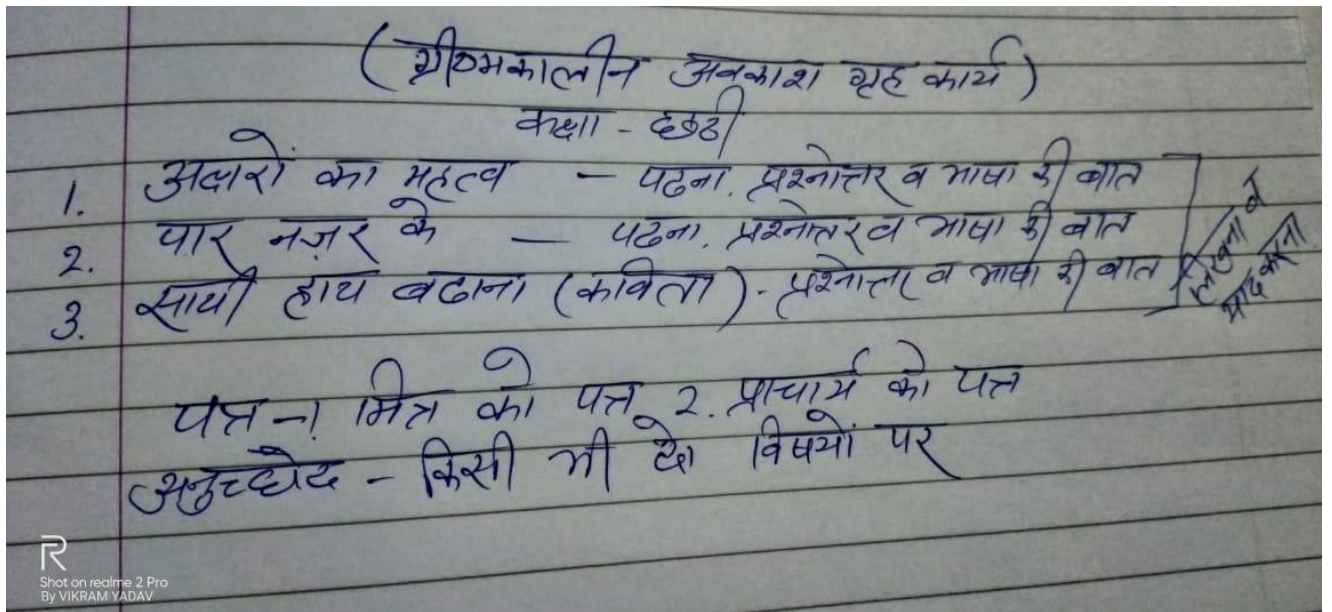 (ग्रीष्मकालीन अवकाश गृह कार्य)
कक्षा - छठी
1. अक्षरों का महत्व - पढना, प्रश्नोत्तर व भाषा की बात
2. पार नज़र के - पढना, प्रश्नोतर व भाषा की बात
3. साथी हाथ बढाना (कविता). प्रश्नोत्तर व भाषा की बात
लिखना व
याद करना
पत्र -1. मित्र को पत्र 2. प्राचार्य को पत्र
अनुच्छेद - किसी भी दो विषयों पर
R
Shot on realme 2 Pro
By VIKRAM YADAV